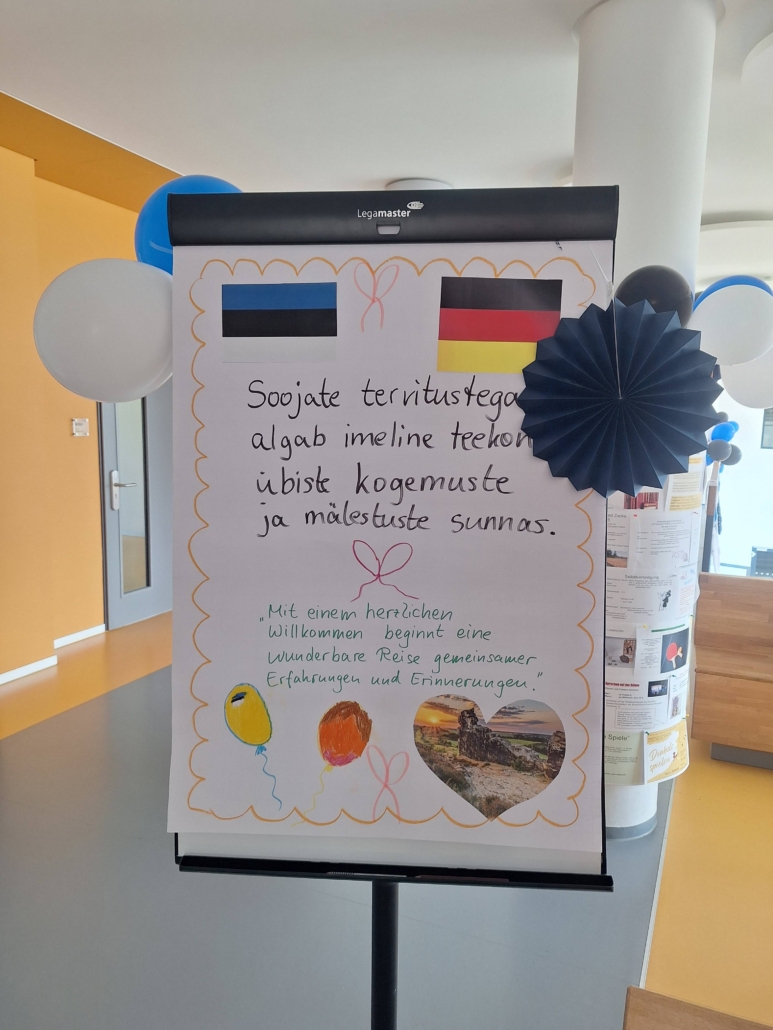 Legamaster
Soojate tervitustega
algab imeline teekon
übiste kogemuste
ja mälestuste sunnas.
„Mit einem herzlichen
Willkommen beginnt eine
wunderbare Reise gemeinsamer
Erfahrungen und Erinnerungen."
Spiele